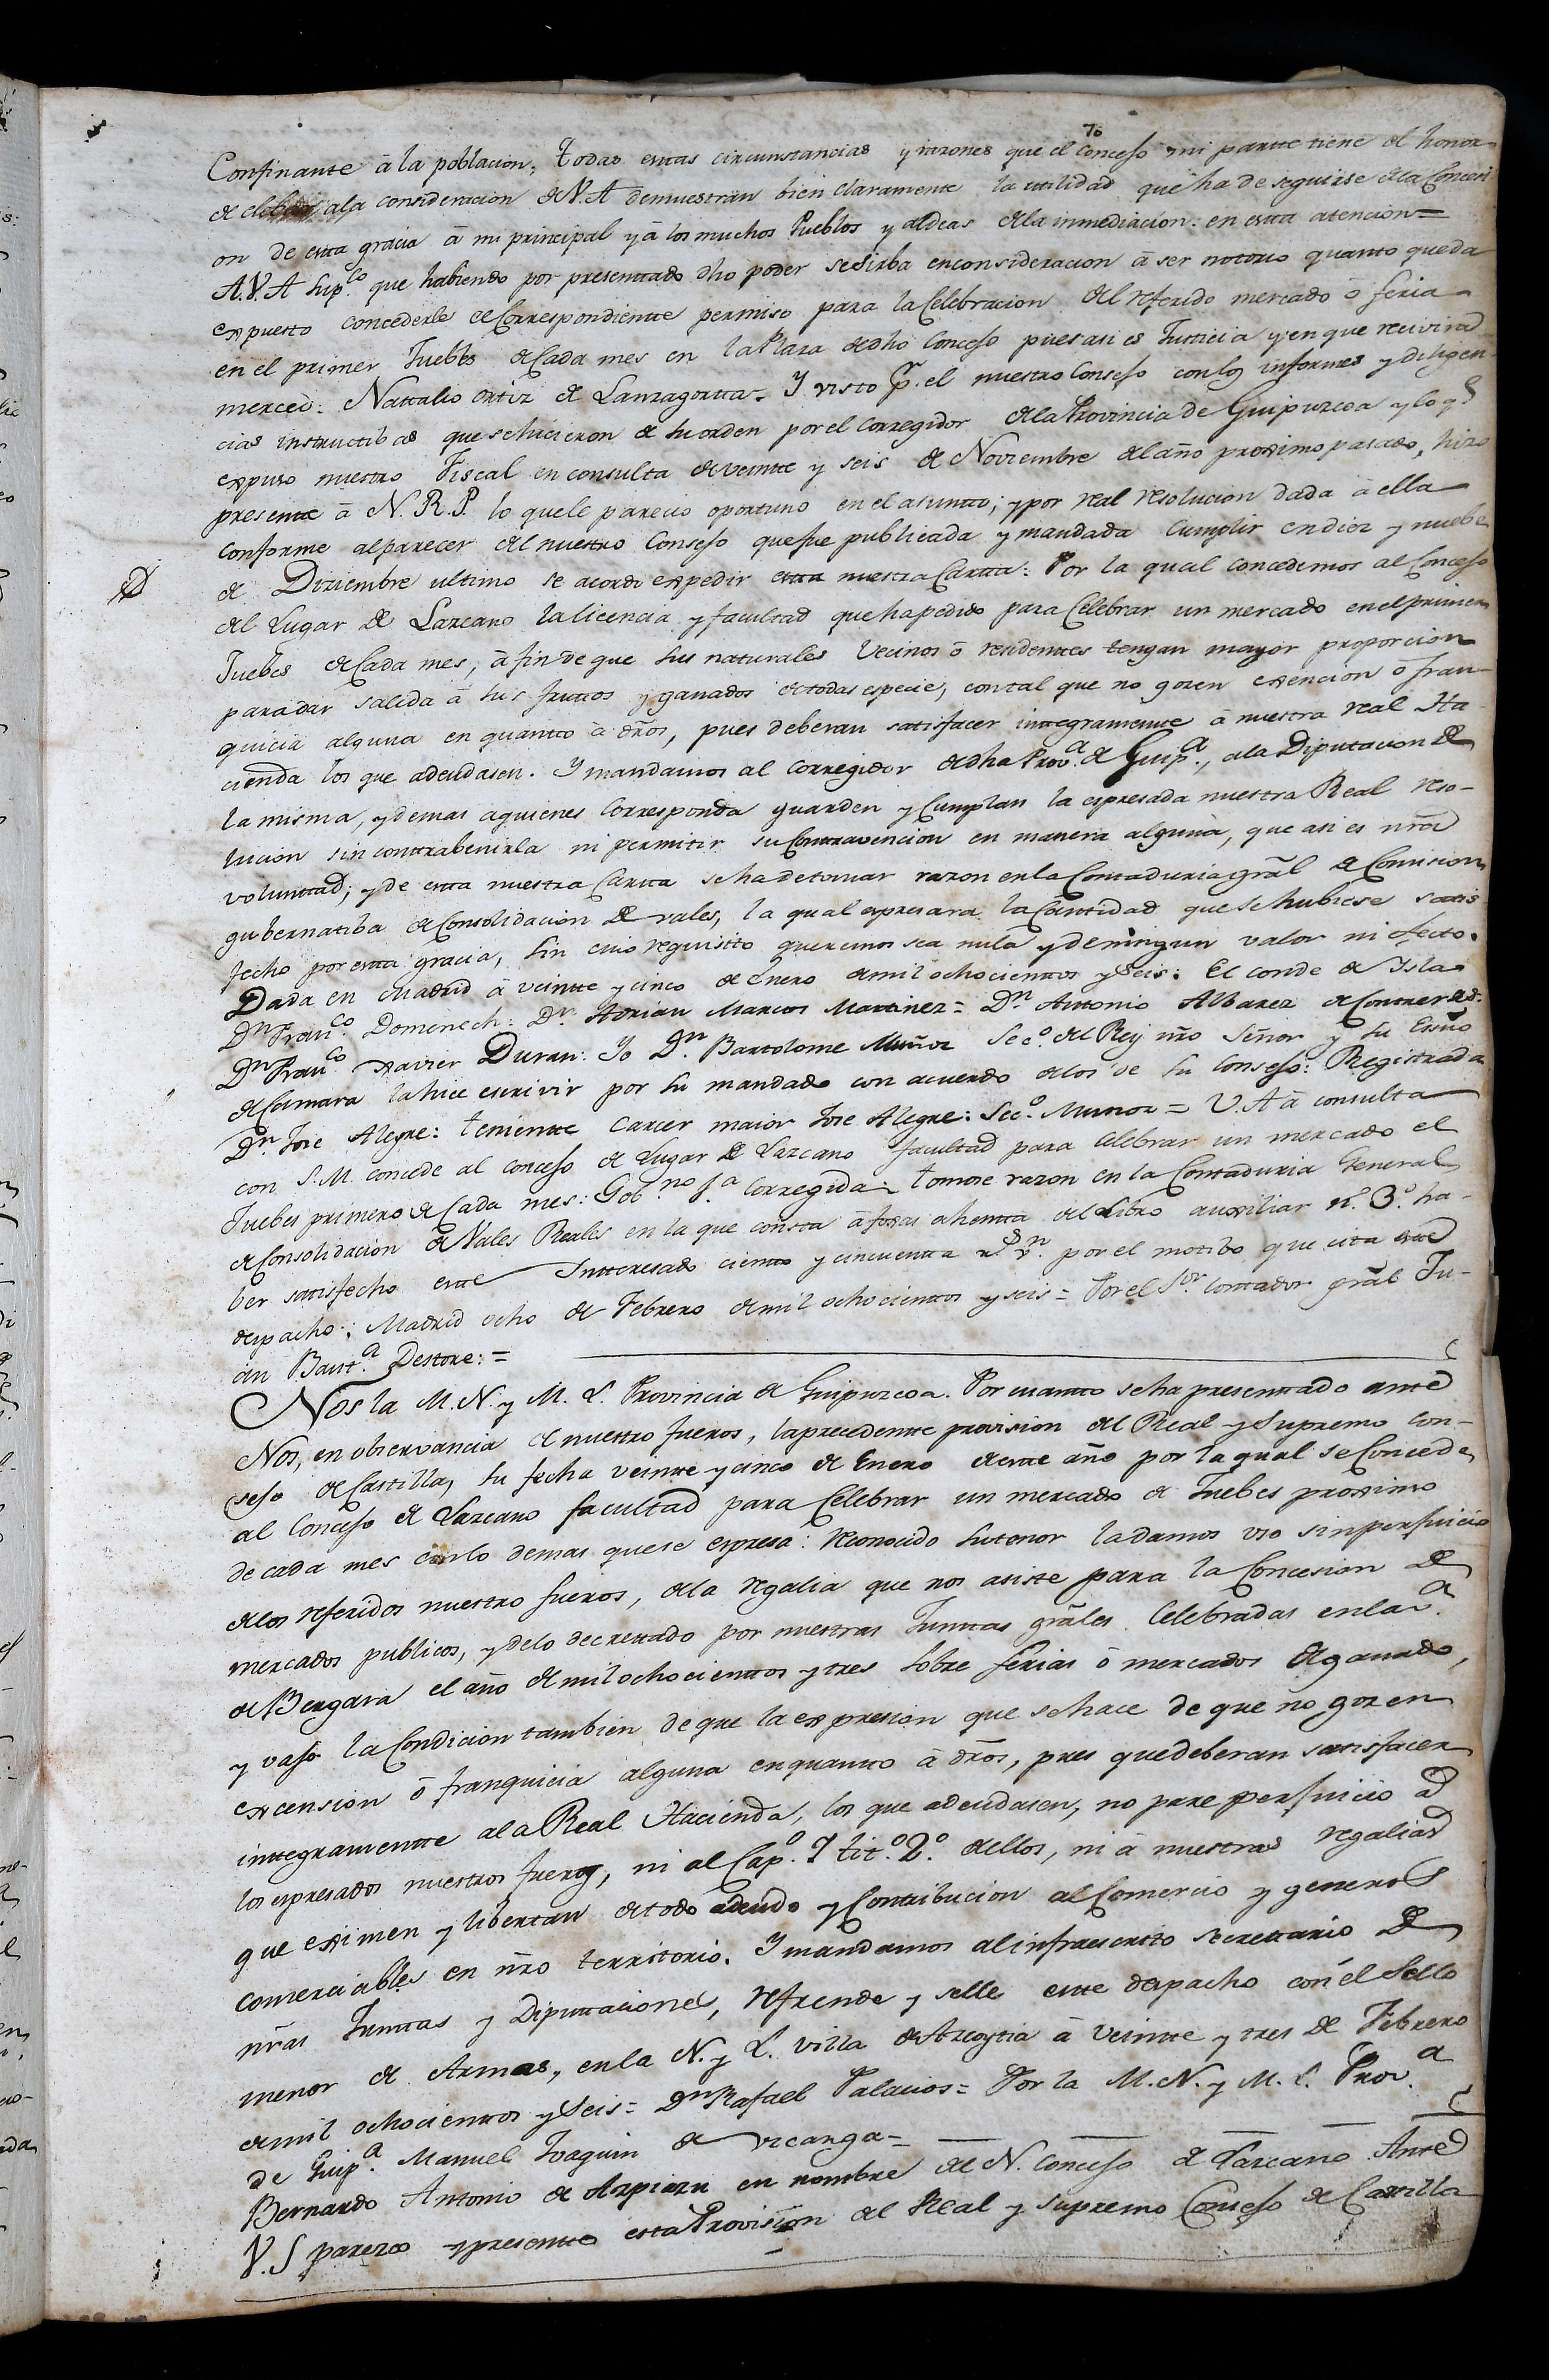 70
Confinante â la poblacion; todas esttas circunstancias y razones que el Concejo mi partte tiene el honor
de elebar ala consideracion de V. A demuestran bien claramente la utilidad que ha de seguirse de la Concesi
on de estta gracia â mi principal y â los muchos Pueblos y aldeas de la inmediacion: en estta atencion =
A. V. A Supco que habiendo por presenttado dho poder se sirba en consideracion â ser notorio quanto queda
expuesto concederle el Correspondiente permiso para la Celebracion del referido mercado ô feria
en el primer Juebes de Cada mes en la Plaza de dho Concejo pues asi es Justicia y en que recivira
merced: Nattalio ortiz de Lanzagortta = Y visto pr. el nuestro Consejo con los informes y diligen
cias instructibas que se hicieron de su orden por el Corregidor de la Provincia de Guipuzcoa y lo qe
expuso nuestro Fiscal en consulta de veintte y seis de Noviembre del año proximo pasado, hizo
presente â N. R. P. lo que le parecio oportuno en el asuntto; y por real resolucion dada â ella
conforme al parecer del nuestro Consejo que fue publicada y mandada Cumplir en diez y nuebe
de Diziembre ultimo se acordo expedir estta nuestra Cartta: Por la qual concedemos al Concejo
del Lugar de Lazcano la licencia y facultad que ha pedido para Celebrar un mercado en el primer
Juebes de Cada mes, â fin de que sus naturales Vecinos ô residenttes tengan mayor proporcion
para dar salida â sus fruttos y ganados de todas especie, con tal que no gozen exencion ô fran-
quicia alguna en quantto â dros, pues deberan satisfacer inttegramentte â nuestra real Ha-
cienda los que adeudasen. Y mandamos al Corregidor de dha Prova. de Guipa., a la Diputacion de
la misma, y demas a quienes Corresponda guarden y Cumplan la espresada nuestra Real reso-
lucion sin conttrabenirla ni permitir su Conttravencion en manera alguna, que asi es nra
volunttad; y de estta nuestra Cartta se ha de tomar razon en la Contaduria gral de Comision
gubernatiba de Consolidacion de vales, la qual espresara la Cantidad que se hubiese satis
fecho por estta gracia, sin cuio requisitto queremos sea nula y de ningun valor ni efecto.
Dada en Madrid â veintte y cinco de Enero de mil ochocienttos y Seis: El conde de Isla
Dn Franco Domenech: Dn. Adrian Marcos Martinez = Dn. Antonio Albarez de Contreras:
Dn Franco xavier Duran: Yo Dn. Bartolome Muñoz Seco. del Rey nro Señor y su Esno
de Camara la hice escrivir por su mandado con acuerdo de los de su Consejo: Registrada
Dn. Jose Alegre: tenientte Canzer maior Jose Alegre: Seco. Munoz = V. A â consulta
con S. M. concede al concejo de Lugar de Lazcano facultad para Celebrar un mercado el
Juebes primero de Cada mes: Gobno 1a Corregida: tomose razon en la Contaduria General
de Consolidacion de Vales Reales en la que consta â fojas ahentta del Libro auxiliar no. 3o. ha-
ber satisfecho estte Intteresado ciento y cincuentta rs vn. por el motibo que cita estte
despacho: Madrid ocho de Febrero de mil ochocienttos y seis = Por el Sor. Contador gral Ju-
an Bauta. Destore: =
Nos la M. N. y M. L. Provincia de Guipuzcoa. Por cuantto se ha presenttado ante
Nos, en observancia de nuestro fueros, la precedentte provision del Real y Supremo Con-
sejo de Castilla, su fecha veintte y cinco de Enero de estte año por la qual se Concede
al Concejo de Lazcano facultad para Celebrar un mercado de Juebes proximo
de cada mes con lo demas que se espresa: reconocido su tenor la damos uso sin perjuicio
de los referidos nuestro fueros, de la regalia que nos asiste para la Concesion de
mercados publicos, y de lo decrettado por nuestras Junttas grales Celebradas en la va.
de Bergara el año de mil ochocienttos y tres sobre ferias ô mercados de ganado,
y vajo la Condicion tambien de que la expresion que se hace de que no gozen
excension ô franquicia alguna en quantto â dros, pues que deberan satisfacer
inttegramentte a la Real Hacienda, los que adeudasen, no pare perjuicio a
los espresados nuestros fueros, ni al Capo. 7 tito. 2o. de ellos, ni â nuestras regalias
que eximen y libertan de todo adeudo y Contribucion al Comercio y generos
comerciables en nro territorio. Y mandamos al infraescrito secrettario de
nras Junttas y Diputtaciones, refrende y selle estte despacho con el Sello
menor de Armas, en la N. y L. villa de Azcoytia â Veintte y tres de Febrero
de mil ochocienttos y Seis = Dn Rafael Palacios = Por la M. N. y M. L. Prova.
de Guipa. Manuel Joaquin de Uzcanga =
Bernardo Antonio de Azpiazu en nombre del N. Concejo de Lazcano Ante
V. S parezco y presentto esta Provision del Real y Supremo Consejo de Castilla